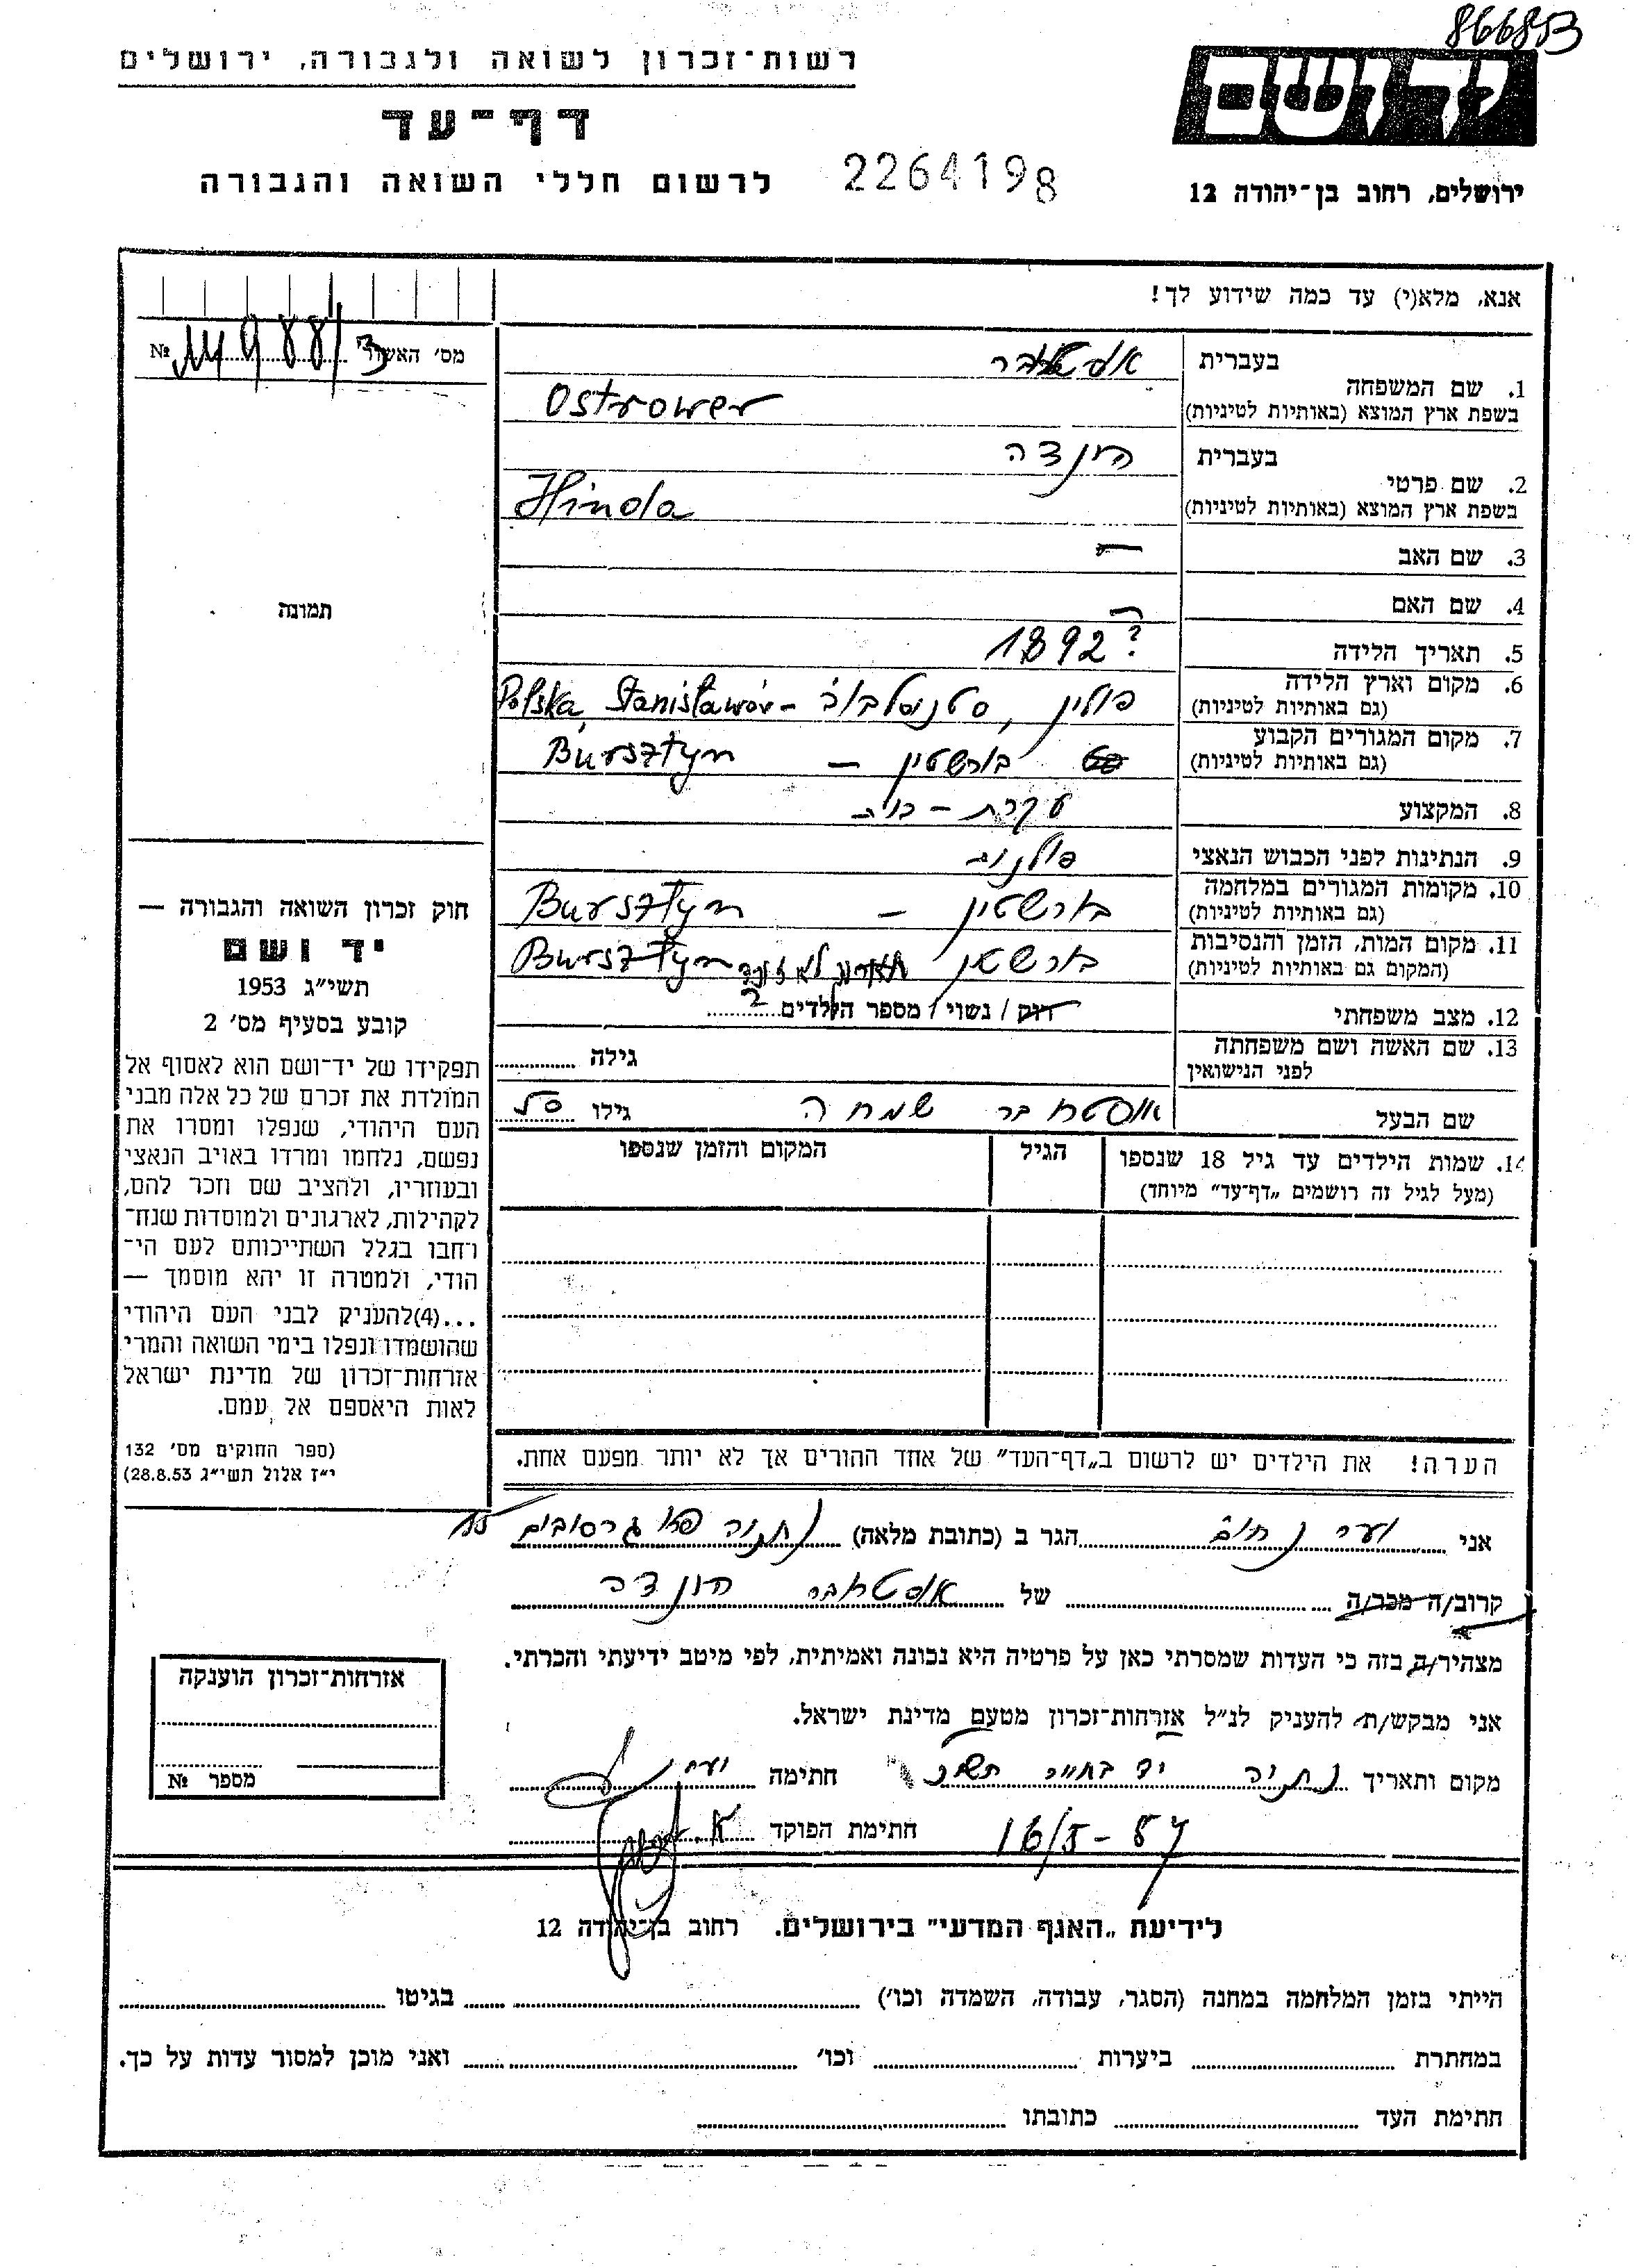 866853
רשות־זכרון לשואה ולגבורה, ירושלים
יד ושם
דף־עד
לרשום חללי השואה והגבורה
2264198
ירושלים, רחוב בן־יהודה 12
אנא, מלא(י) עד כמה שידוע לך!
מס׳ האשור № 114988/3
1. שם המשפחה
בעברית
בשפת ארץ המוצא (באותיות לטיניות) Ostrower
2. שם פרטי
בעברית הינדה
בשפת ארץ המוצא (באותיות לטיניות) Hinda
3. שם האב —
4. שם האם
תמונה
5. תאריך הלידה 1892 ?
6. מקום וארץ הלידה (גם באותיות לטיניות) פולין, סטניסלבוב – Polska, Stanisławów
7. מקום המגורים הקבוע (גם באותיות לטיניות) בורשטין – Bursztyn
8. המקצוע עקרת – בית
9. הנתינות לפני הכבוש הנאצי פולנית
10. מקומות המגורים במלחמה (גם באותיות לטיניות) בורשטין – Bursztyn
11. מקום המות, הזמן והנסיבות (המקום גם באותיות לטיניות) בורשטין Bursztyn
12. מצב משפחתי רווק / נשוי / מספר הילדים 2
13. שם האשה ושם משפחתה לפני הנישואין גילה
שם הבעל אוסטרובר שמחה גילו
14. שמות הילדים עד גיל 18 שנספו
(מעל לגיל זה רושמים „דף־עד״ מיוחד)
הגיל
המקום והזמן שנספו
הערה! את הילדים יש לרשום ב„דף־העד״ של אחד ההורים אך לא יותר מפעם אחת.
חוק זכרון השואה והגבורה —
יד ושם
תשי״ג 1953
קובע בסעיף מס׳ 2
תפקידו של יד־ושם הוא לאסוף אל
המולדת את זכרם של כל אלה מבני
העם היהודי, שנפלו ומסרו את
נפשם, נלחמו ומרדו באויב הנאצי
ובעוזריו, ולהציב שם וזכר להם,
לקהילות, לארגונים ולמוסדות שנח־
רחבו בגלל השתייכותם לעם הי־
הודי, ולמטרה זו יהא מוסמך —
...(4)להעניק לבני העם היהודי
שהושמדו ונפלו בימי השואה והמרי
אזרחות־זכרון של מדינת ישראל
לאות היאספם אל עמם.
(ספר החוקים מס׳ 132
י״ז אלול תשי״ג 28.8.53)
אני הגר ב (כתובת מלאה) נתניה
קרוב/ה מכר/ה של אוסטרובר הינדה
מצהיר/ה בזה כי העדות שמסרתי כאן על פרטיה היא נכונה ואמיתית, לפי מיטב ידיעתי והכרתי.
אני מבקש/ת להעניק לנ״ל אזרחות־זכרון מטעם מדינת ישראל.
מקום ותאריך נתניה חתימה
16/5-57 חתימת הפוקד
אזרחות־זכרון הוענקה
מספר №
לידיעת „האגף המדעי״ בירושלים. רחוב בן־יהודה 12
הייתי בזמן המלחמה במחנה (הסגר, עבודה, השמדה וכו׳) בגיטו
במחתרת ביערות וכו׳ ואני מוכן למסור עדות על כך.
חתימת העד כתובתו